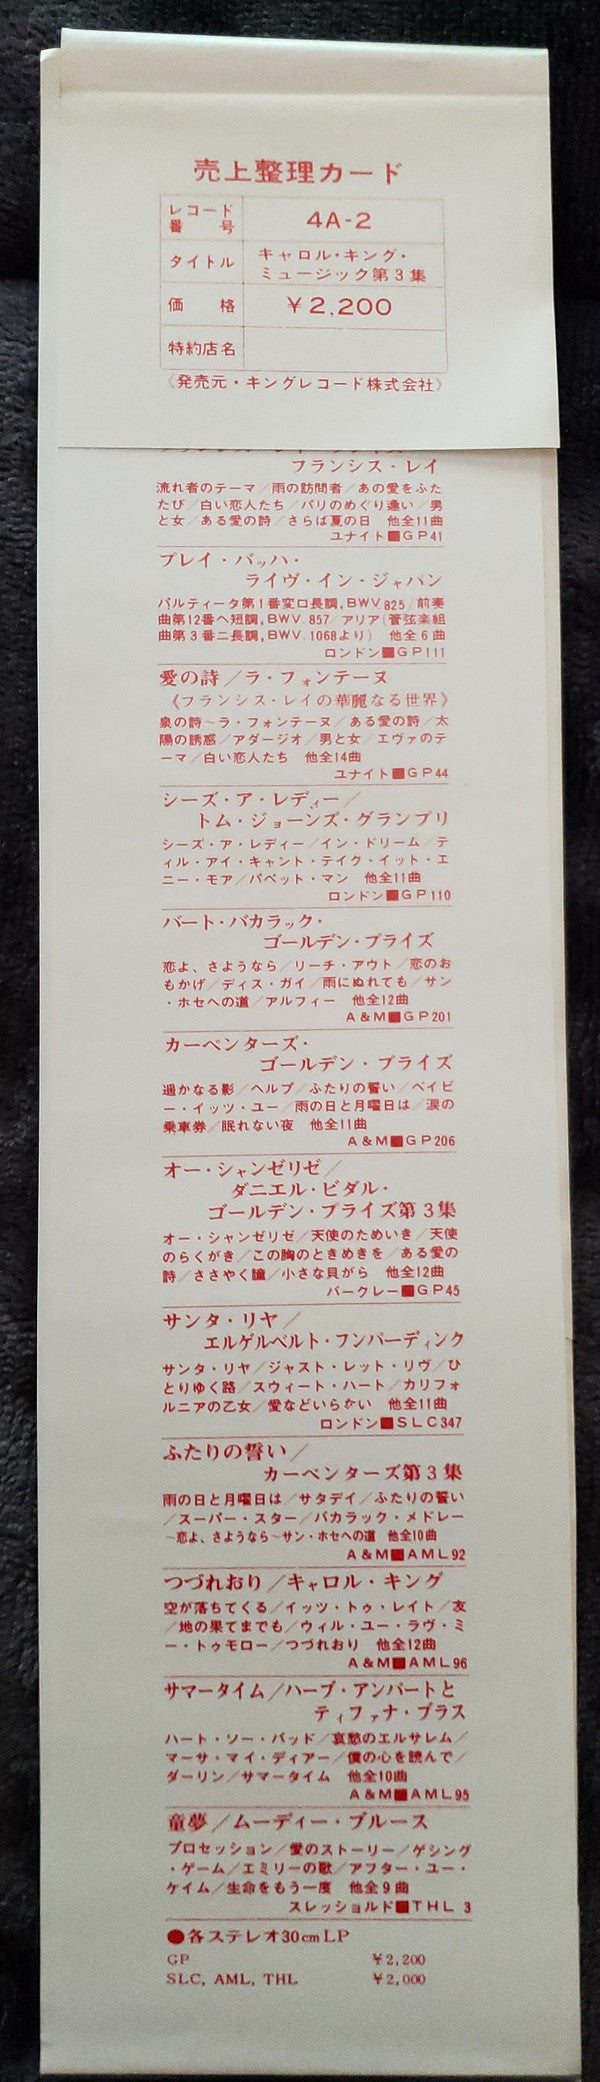 売上整理カード
レコード番号 4A-2
タイトル キャロル・キング・
ミュージック第3集
価格 ¥2,200
特約店名
《発売元・キングレコード株式会社》
フランシス・レイ
流れ者のテーマ／雨の訪問者／あの愛をふた
たび／白い恋人たち／パリのめぐり逢い／男
と女／ある愛の詩／さらば夏の日 他全11曲
ユナイト■GP41
プレイ・バッハ・
ライヴ・イン・ジャパン
パルティータ第1番変ロ長調,BWV.825／前奏
曲第12番ヘ短調,BWV.857／アリア(管弦楽組
曲第3番ニ長調,BWV.1068より) 他全6曲
ロンドン■GP111
愛の詩／ラ・フォンテーヌ
《フランシス・レイの華麗なる世界》
泉の詩～ラ・フォンテーヌ／ある愛の詩／太
陽の誘惑／アダージオ／男と女／エヴァのテ
ーマ／白い恋人たち 他全14曲
ユナイト■GP44
シーズ・ア・レディー／
トム・ジョーンズ・グランプリ
シーズ・ア・レディー／イン・ドリーム／テ
ィル・アイ・キャント・テイク・イット・エ
ニー・モア／パペット・マン 他全11曲
ロンドン■GP110
バート・バカラック・
ゴールデン・プライズ
恋よ、さようなら／リーチ・アウト／恋のお
もかげ／ディス・ガイ／雨にぬれても／サン
・ホセへの道／アルフィー 他全12曲
A&M■GP201
カーペンターズ・
ゴールデン・プライズ
遥かなる影／ヘルプ／ふたりの誓い／ベイビ
ー・イッツ・ユー／雨の日と月曜日は／涙の
乗車券／眠れない夜 他全11曲
A&M■GP206
オー・シャンゼリゼ／
ダニエル・ビダル・
ゴールデン・プライズ第3集
オー・シャンゼリゼ／天使のためいき／天使
のらくがき／この胸のときめきを／ある愛の
詩／ささやく瞳／小さな貝がら 他全12曲
バークレー■GP45
サンタ・リヤ／
エルゲルベルト・フンパーディンク
サンタ・リヤ／ジャスト・レット・リヴ／ひ
とりゆく路／スウィート・ハート／カリフォ
ルニアの乙女／愛などいらない 他全11曲
ロンドン■SLC347
ふたりの誓い／
カーペンターズ第3集
雨の日と月曜日は／サタデイ／ふたりの誓い
／スーパー・スター／バカラック・メドレー
～恋よ、さようなら～サン・ホセへの道 他全10曲
A&M■AML92
つづれおり／キャロル・キング
空が落ちてくる／イッツ・トゥ・レイト／友
／地の果てまでも／ウィル・ユー・ラヴ・ミ
ー・トゥモロー／つづれおり 他全12曲
A&M■AML96
サマータイム／ハーブ・アンパートと
ティファナ・ブラス
ハート・ソー・バッド／哀愁のエルサレム／
マーサ・マイ・ディアー／僕の心を読んで／
ダーリン／サマータイム 他全10曲
A&M■AML95
童夢／ムーディー・ブルース
プロセッション／愛のストーリー／ゲシング
・ゲーム／エミリーの歌／アフター・ユー・
ケイム／生命をもう一度 他全9曲
スレッショルド■THL 3
●各ステレオ30cmLP
GP ¥2,200
SLC, AML, THL ¥2,000